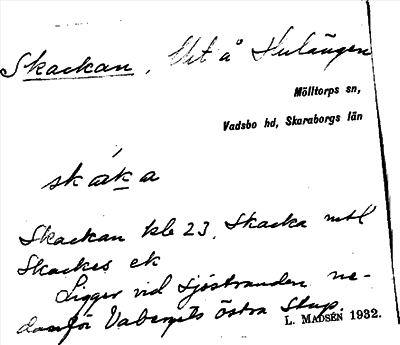 Skackan, Ut å Hulängen
Mölltorps sn,
Vadsbo hd, Skaraborgs län
skáka
Skackan kle 23, Skacka mtl
Skackes ek
Ligger vid sjöstranden ne-
danför Vabergets östra stup.
L. MADSÉN 1932.